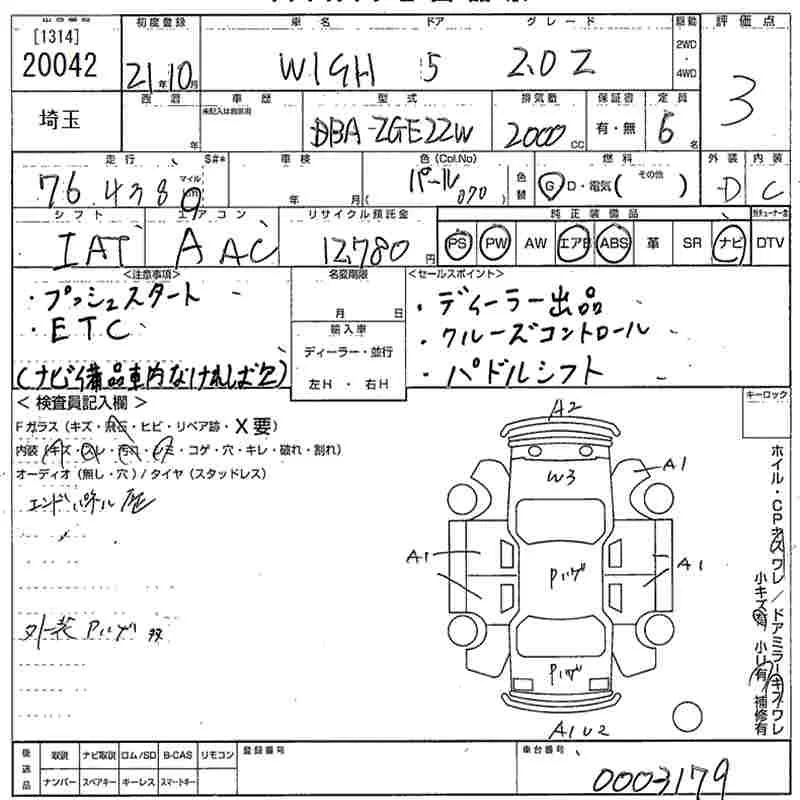 出品番号 初度登録 車名 ドア グレード 駆動 評価点
[1314]
20042 21年10月 WISH 5 2.0Z 2WD・4WD 3
埼玉 西暦 年 車歴 型式 排気量 保証書 定員
未記入は自家用 DBA-ZGE22W 2000cc 有・無 6名
走行 S#* 車検 色(Col.No) 燃料 外装 内装
76,438 マイル km 年 月 パール(070) 色替 G・D・電気(その他) D C
シフト エアコン リサイクル預託金 純正装備品
IAT AAC 12,780円 PS PW AW エアB ABS 革 SR ナビ DTV
<注意事項> 名変期限 <セールスポイント>
・プッシュスタート 月 日 ・ディーラー出品
・ETC 輸入車 ・クルーズコントロール
ディーラー・並行 ・パドルシフト
(ナビ備品車内なければ欠) 左H・右H
<検査員記入欄> キーロック
Fガラス(キズ・飛石・ヒビ・リペア跡・X要)
内装(キズ・スレ・汚れ・シミ・コゲ・穴・キレ・破れ・割れ)
オーディオ(無し・穴)/タイヤ(スタッドレス)
エンドパネル
外装Pハゲ
A2
W3 A1
A1 A1
Pハゲ
Pハゲ
A1U2
ホイル・CPキズワレ/ドアミラーキズワレ
小キズ有 小U有 補修有
後送品 取説 ナビ取説 ロム/SD B-CAS リモコン 登録番号 車台番号
ナンバー スペアキー キーレス スマートキー 0003179